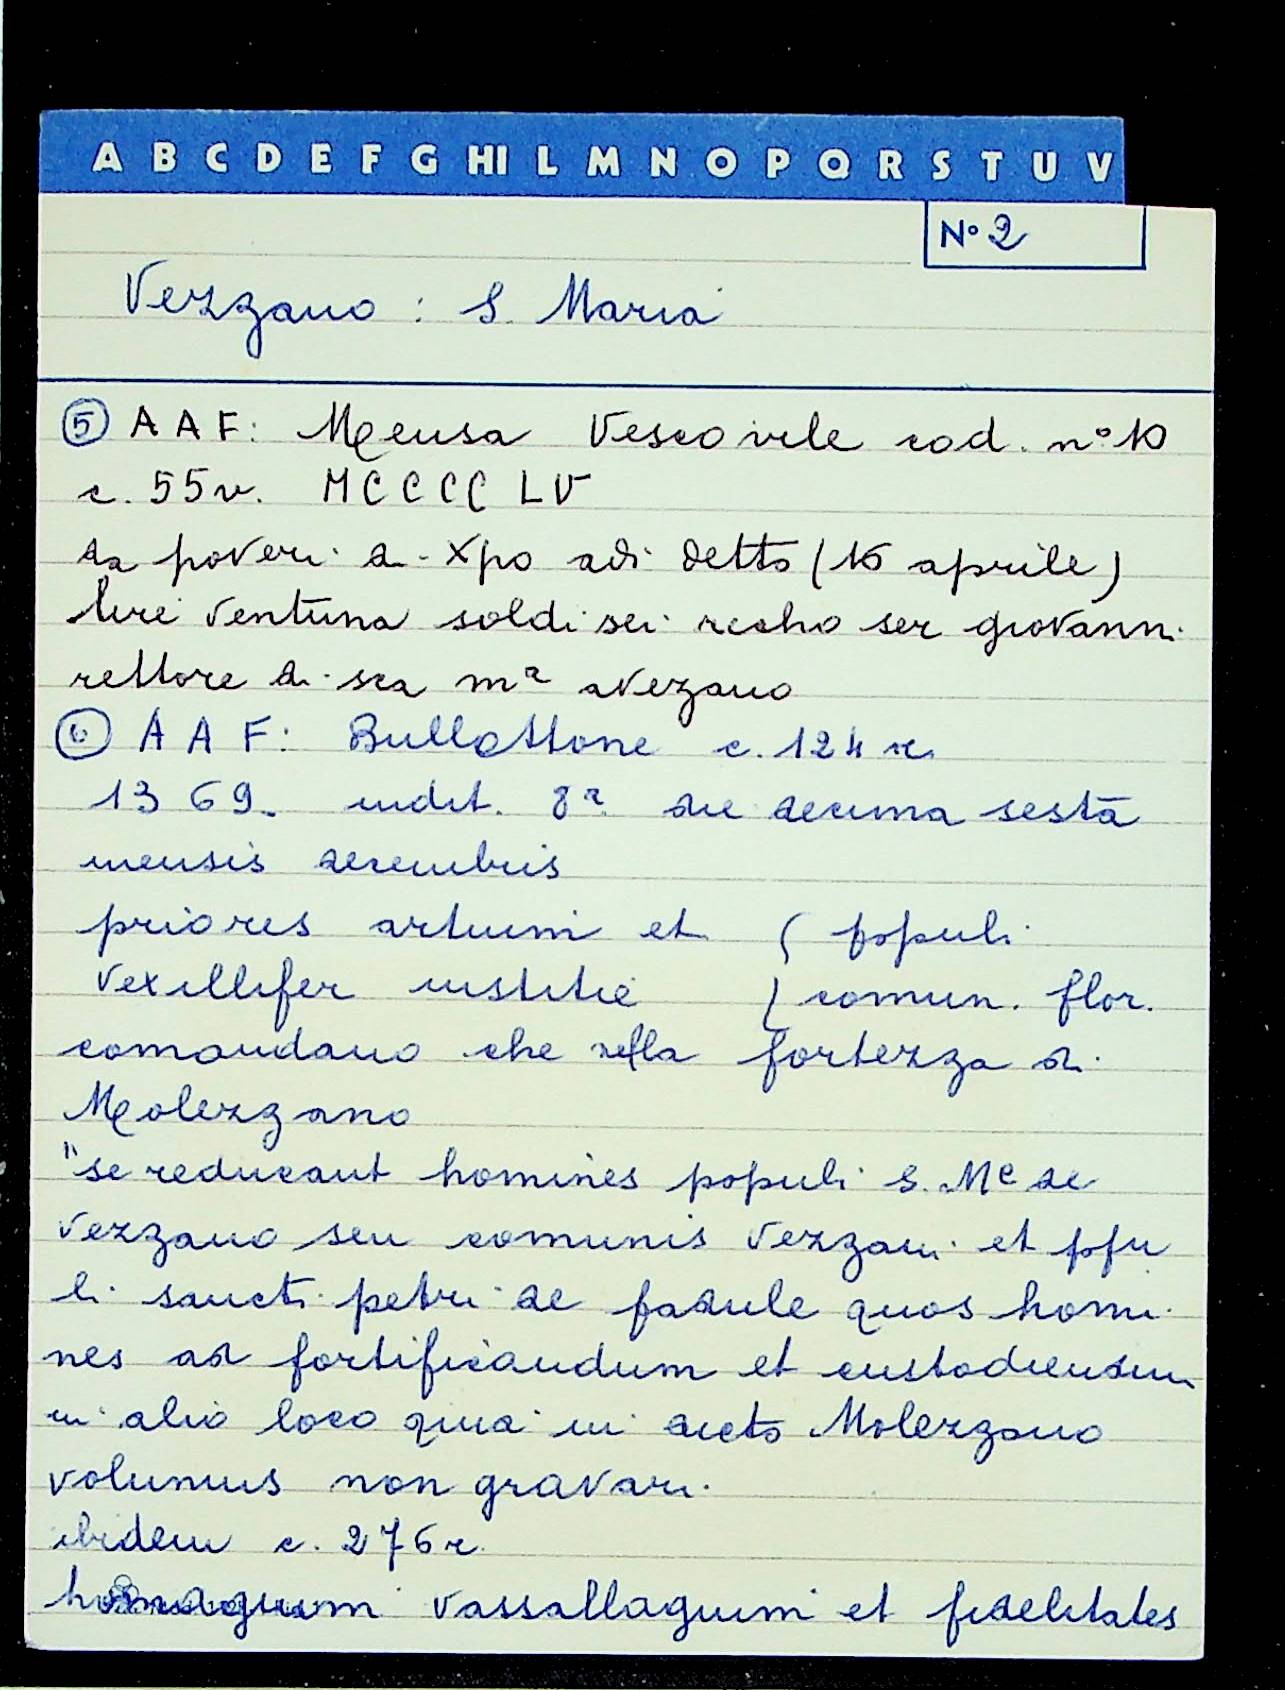 A B C D E F G HI L M N O P Q R S T U V
N° 2
Vezzano : S. Maria
5 A A F: Mensa Vescovile cod. n° 10
c. 55v. MCCCCLV
da poveri di Xpo adi detto (16 aprile)
lire ventuna soldi sei recho ser giovanni
rettore di sca mª avezano
6 A A F: Bullettone c. 124 r.
1369. indit. 8ª die decima sesta
mensis decembris
priores artium et ( populi
vexillifer iustitie ( comun. flor.
comandano che nella fortezza di
Molezzano
"se reducant homines populi S. Me de
Vezzano seu comunis Vezzani et popu
li sancti petri de padule quos homi
nes ad fortificandum et custodiendum
in alio loco quia in dicto Molezzano
volumus non gravari.
ibidem c. 276 r.
homagium vassallagium et fidelitates